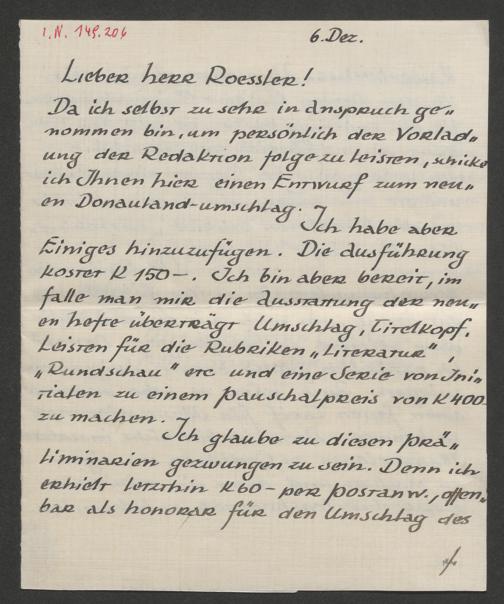 I.N. 149.206
6. Dez.
Lieber herr Roessler!
Da ich selbst zu sehr in Anspruch ge„
nommen bin, um persönlich der Vorlad„
ung der Redaktion folge zu leisten, schicke
ich Ihnen hier einen Entwurf zum neu„
en Donauland-umschlag.
Ich habe aber
Einiges hinzuzufügen. Die Ausführung
kostet K 150–. Ich bin aber bereit, im
falle man mir die Ausstattung der neu„
en hefte überträgt Umschlag, Titelkopf,
Leisten für die Rubriken „Literatur",
„Rundschau" etc und eine Serie von Ini„
tialen zu einem pauschalpreis von K 400
zu machen.
Ich glaube zu diesen prä„
liminarien gezwungen zu sein. Denn ich
erhielt letzthin K 60– per postanw., offen„
bar als honorar für den Umschlag des